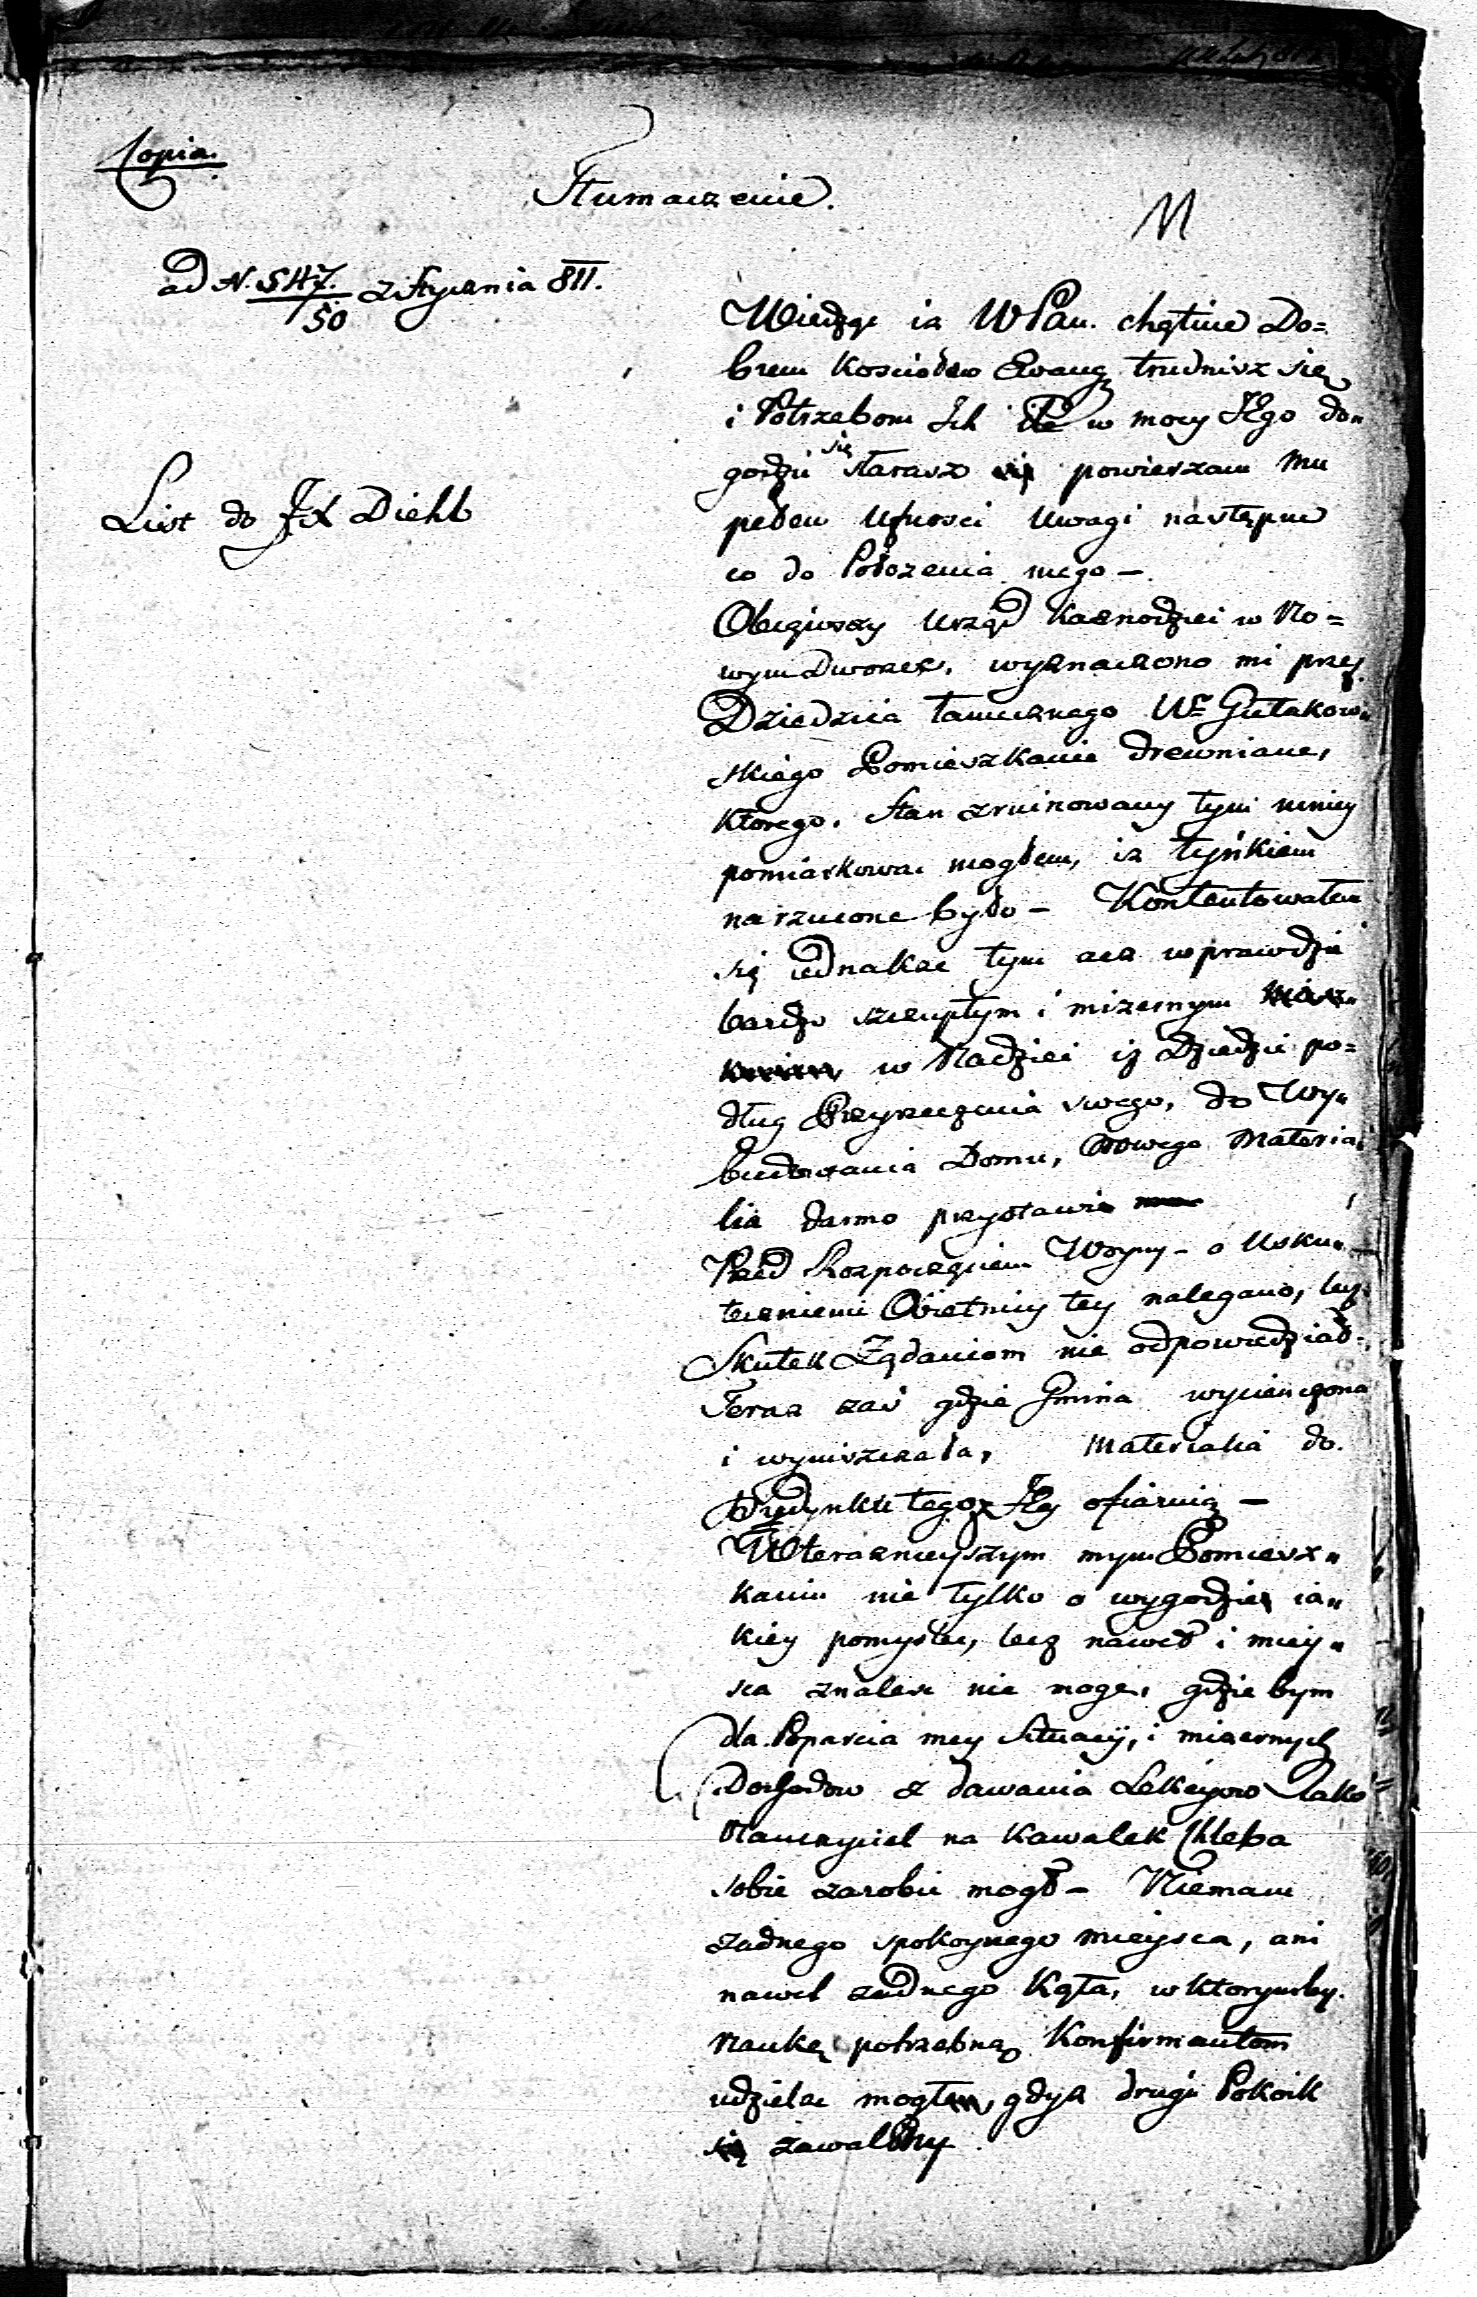 Copia.
Tłumaczenie.
11
ad N. 547./50 z Stycznia 811.
List do JX Diehl
Wiedząc iż WPan. chętnie Do=
brem Kosciołow Ewang trudnisz się
i Potrzebom Ich ile w mocy JEgo do„
godzić się starasz powierzam Mu
pełen Ufnosci Uwagi następne
co do Położenia mego —
Obiąwszy Urząd Kaznodziei w No=
wym Dworze, wyznaczono mi przez
Dziedzica tamecznego Ur Gutakow„
skiego Pomieszkanie drewniane,
ktorego Stan zruinowany tym mniey
pomiarkować mogłem, iż tyńkiem
narzucone było — Kontentowałem
się iednakże tym acz wprawdzie
bardzo szczupłym i mizernym
w Nadziei iż Dziedzic po=
dług Przyrzeczenia swego, do Wy„
budowania Domu, nowego Materia„
lia darmo przystawi
Przed Rozpoczęciem Woyny — o Usku„
tecznienie Obietnicy tey nalegano, lecz
Skutek Żądaniom nie odpowiedział.
Teraz zaś gdzie Gmina wycieńczona
i wyniszczała, Materialia do
Budynku tegoż Jey ofiaruią —
W terazneyszym mym Pomiesz„
kaniu nie tylko o wygodzie ia„
kiey pomysleć, lecz nawet i miey„
sca znalesc nie mogę, gdzie bym
dla Poparcia mey Situacyi, i mizernych
Dochodow z dawania Lekcyow Jako
Nauczyciel na Kawałek Chleba
sobie zarobić mogł — Niemam
żadnego spokoynego mieysca, ani
nawet żadnego Kąta, w ktorymby
Naukę potrzebną Konfirmantom
udzielać mogłem, gdyż drugi Pokoik
zawalony